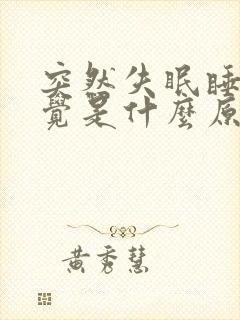 突然失眠睡
覺是什麼原
黃秀慧